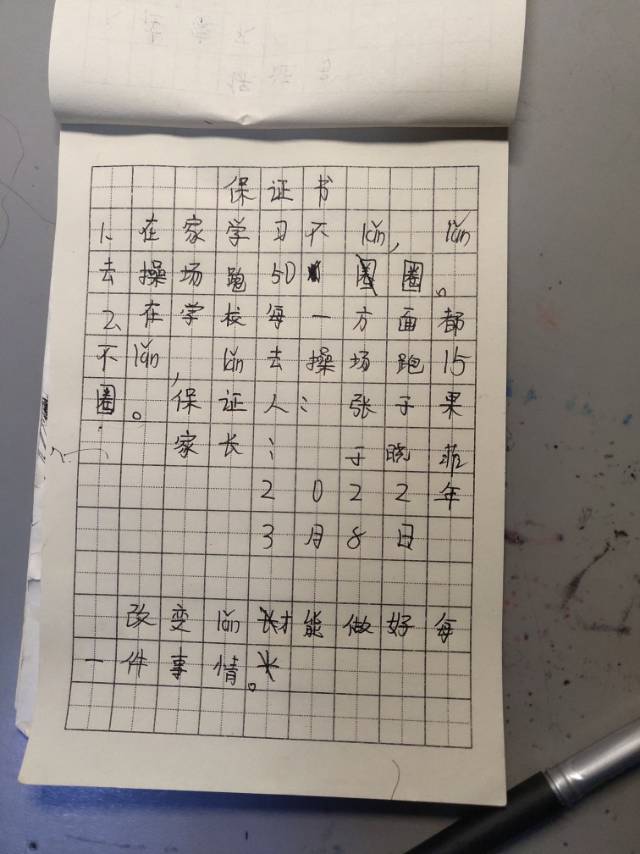 保证书
1、在家学习不lǎn，lǎn
去操场跑50圈圈。
2、在学校每一方面都
不lǎn，lǎn去操场跑15
圈。保证人：张子果
家长：于晓菲
2022年
3月8日
改变lǎn才能做好每
一件事情。